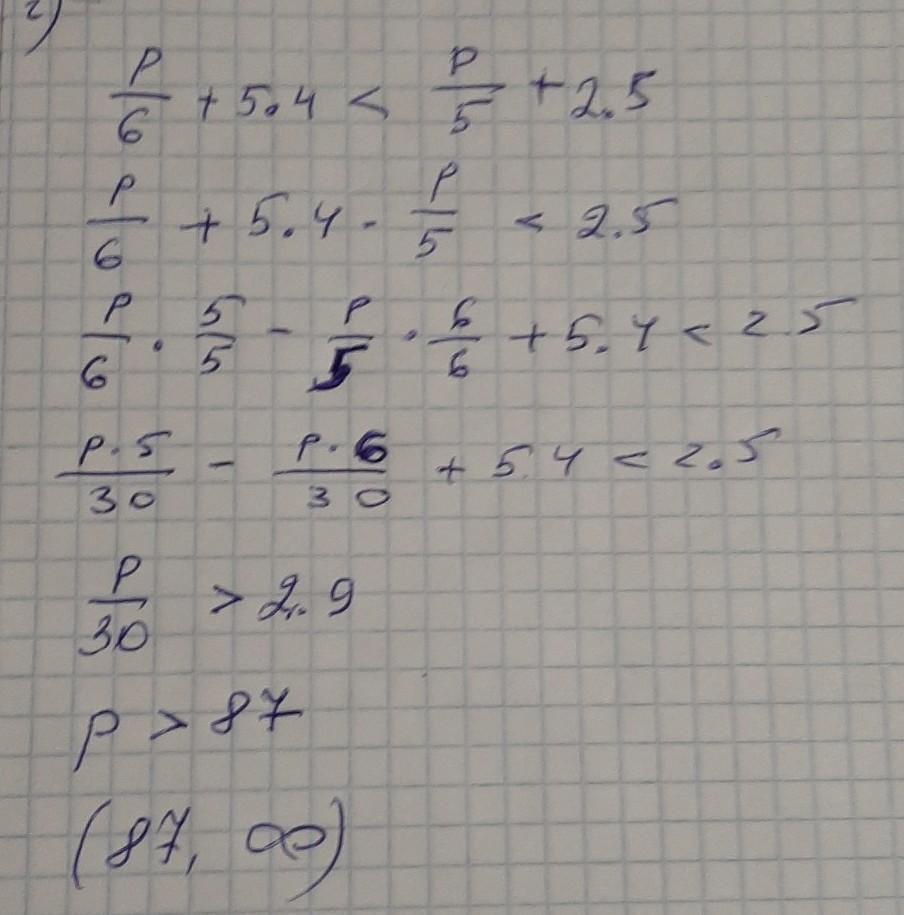 2)
p/6 + 5.4 < p/5 + 2.5
p/6 + 5.4 - p/5 < 2.5
p/6 · 5/5 - p/5 · 6/6 + 5.4 < 2 5
p·5/30 - p·6/30 + 5.4 < 2.5
p/30 > 2.9
p > 87
(87, ∞)